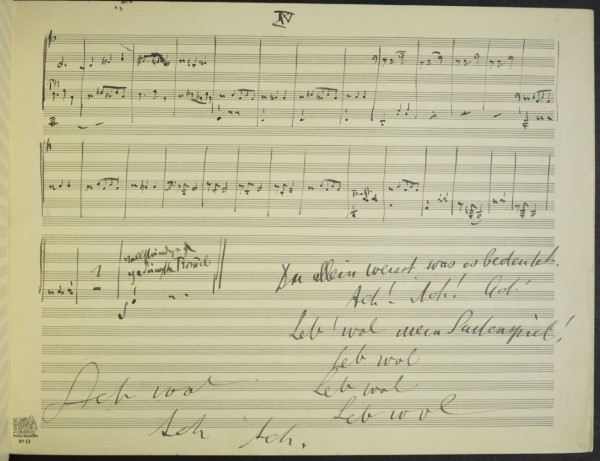 IV
vollständig
gedämpfte Trommel
1
Du allein weisst was es bedeutet.
Ach! Ach! Ach!
Leb' wol mein Saitenspiel!
Leb wol
Leb wol
Leb wol
Ach wol
Ach Ach.